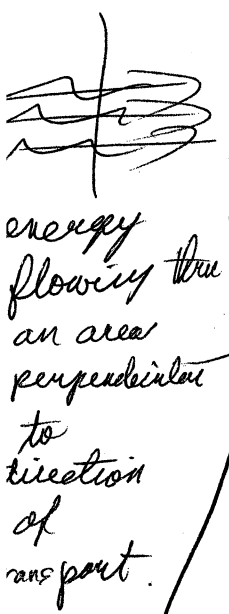 energy
flowing thru
an area
perpendicular
to
direction
of
transport.